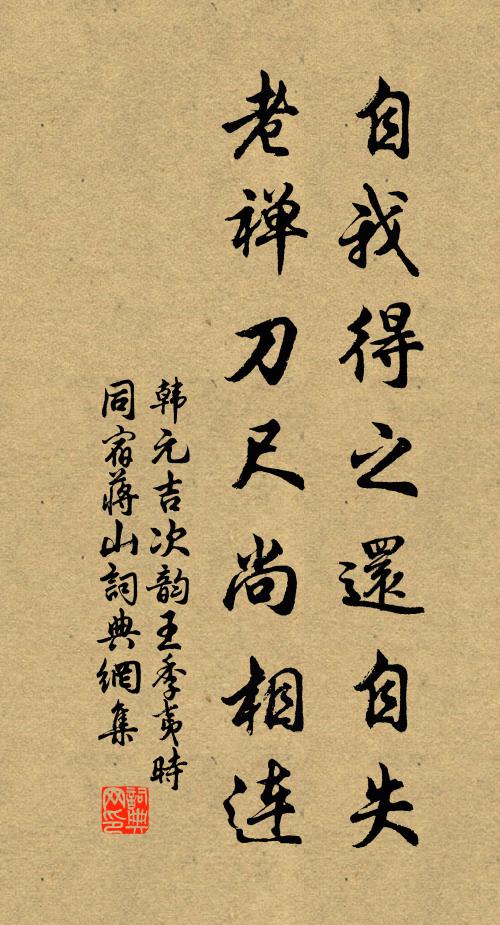 自我得之還自失
老禅刀尺尚相连
韩元吉次韵王季夷時
同宿蒋山詞典網集
詞典网印